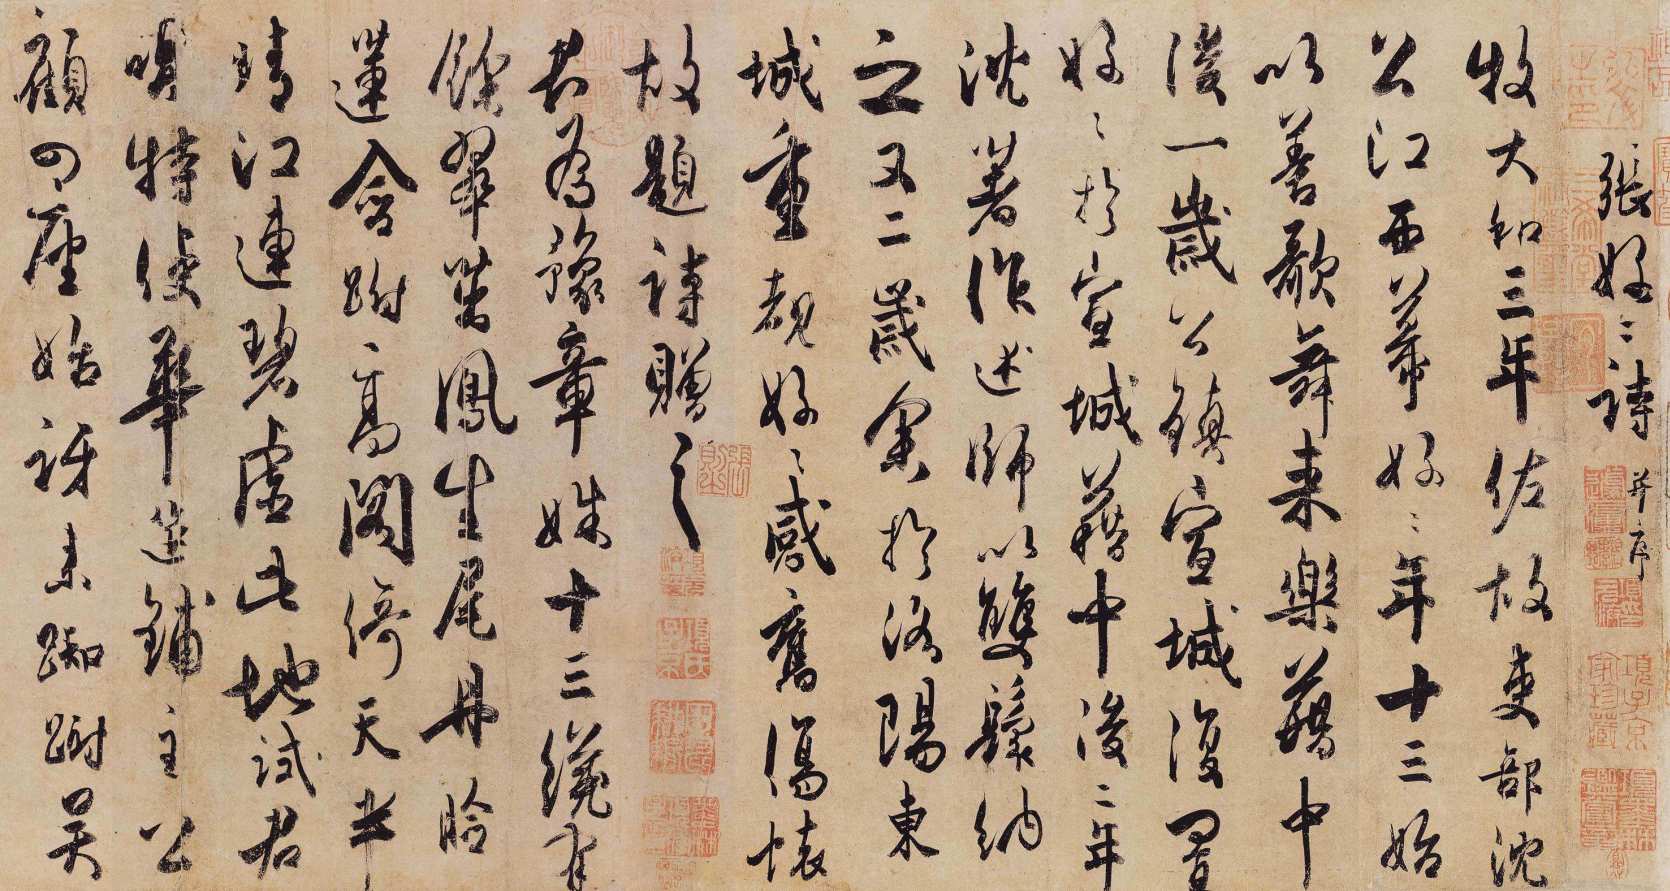 張好〻詩 并序
牧大和三年佐故吏部沈
公江西幕好〻年十三始
以善歌舞来樂籍中
後一歲公鎮宣城復置
好〻於宣城籍中後二年
沈著作述師以雙鬟納
之又二歲余於洛陽東
城重覩好〻感舊傷懷
故題詩贈之
君為豫章姝十三纔有
餘翠茁鳳生尾丹臉
蓮含跗高閣倚天半
晴江連碧虛此地試君
唱特使華筵鋪主公
顧四座始訝来踟躕吳